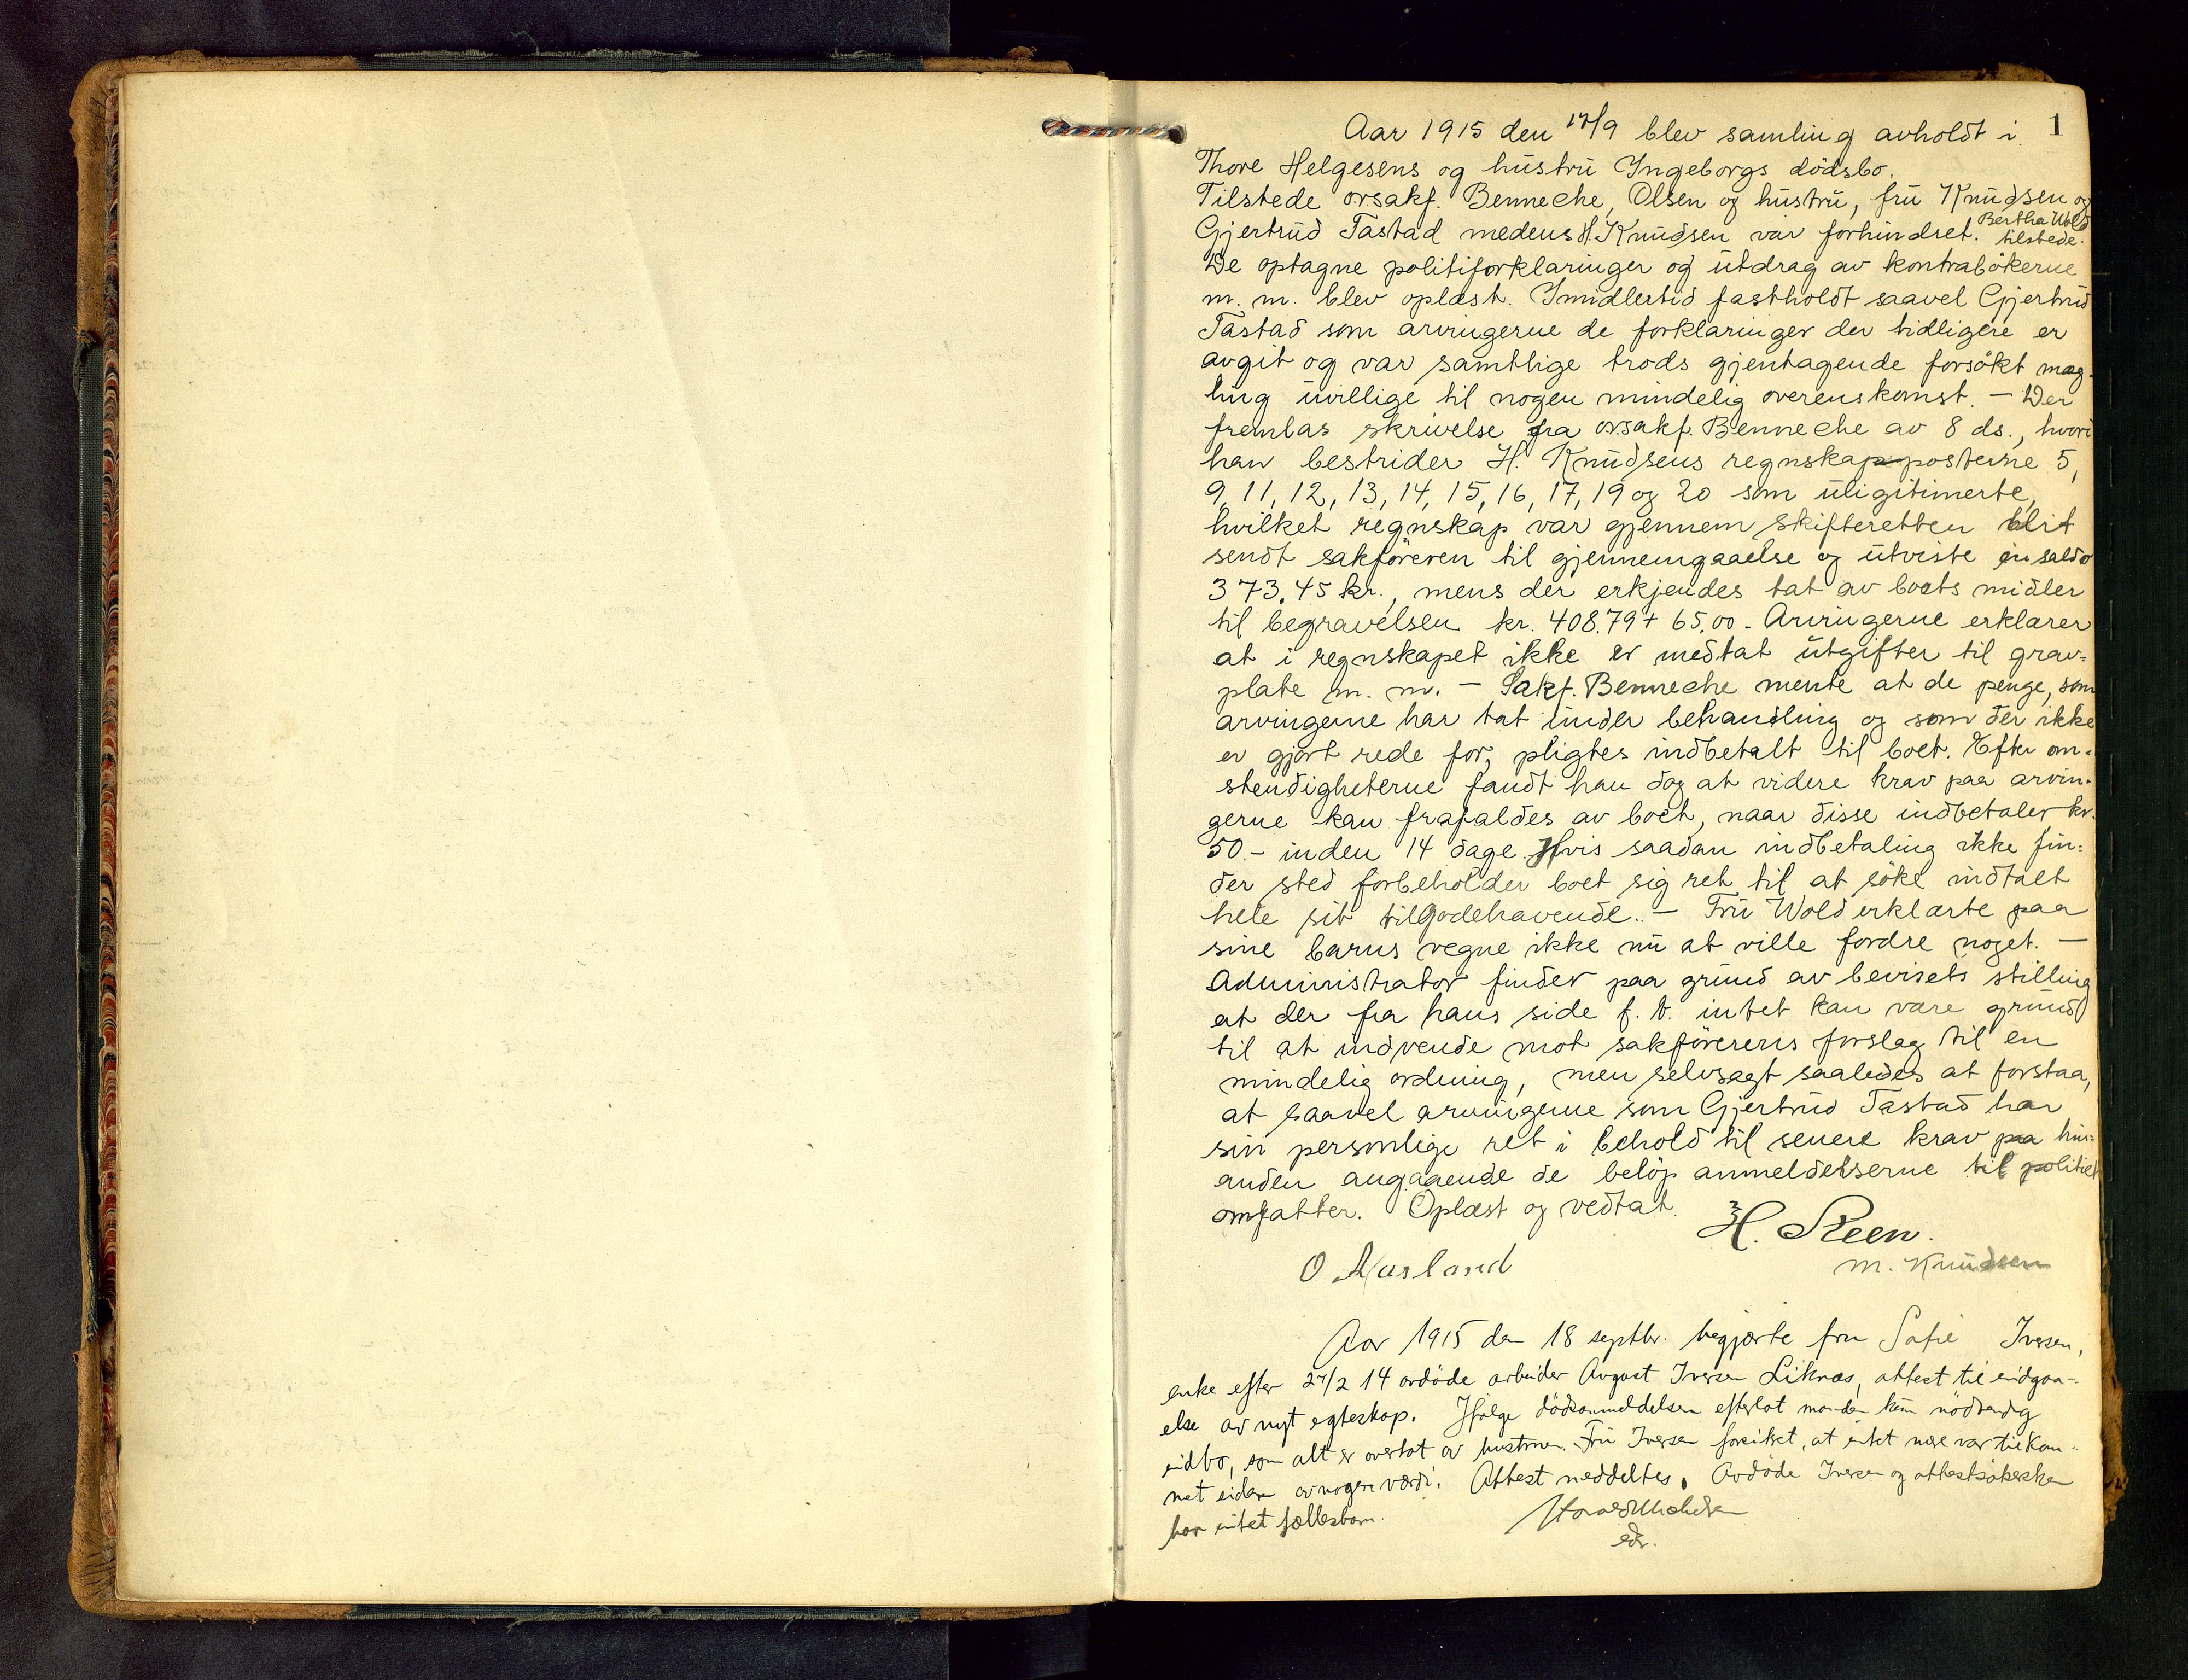 1
Aar 1915 den 17/9 blev samling avholdt i
Thore Helgesens og hustru Ingeborgs dödsbo.
Tilstede orsakf. Benneche, Olsen og hustru, fru Knudsen og
Bertha Wold
Gjertrud Tastad medens H. Knudsen var forhindret. tilstede.
De optagne politiforklaringer og utdrag av kontrabökerne
m. m. blev oplæst. Imidlertid fastholdt saavel Gjertrud
Tastad som arvingerne de forklaringer der tidligere er
avgit og var samtlige trods gjentagende forsökt mæg-
ling uvillige til nogen mindelig overenskomst. — Der
fremlas skrivelse fra orsakf. Benneche av 8 ds., hvori
han bestrider H. Knudsens regnskapposterne 5,
9, 11, 12, 13, 14, 15, 16, 17, 19 og 20 som uligitimerte,
hvilket regnskap var gjennem skifteretten blit
sendt sakföreren til gjennemgaaelse og utviste en saldo
373.45 kr., mens der erkjendes tat av boets midler
til begravelsen kr. 408.79 + 65.00 - Arvingerne erklærer
at i regnskapet ikke er medtat utgifter til grav-
plate m. m. — Sakf. Benneche mente at de penge, som
arvingerne har tat under behandling og som der ikke
er gjort rede for, pligtes indbetalt til boet. Efter om-
stendigheterne fandt han dog at videre krav paa arvin-
gerne kan frafaldes av boet, naar disse indbetaler kr.
50.- inden 14 dage. Hvis saadan indbetaling ikke fin-
der sted forbeholder boet sig ret til at söke indtalt
hele sit tilgodehavende. — Fru Wold erklærte paa
sine barns vegne ikke nu at ville fordre noget. —
Administrator finder paa grund av bevisets stilling
at der fra hans side f. t. intet kan være grund
til at indvende mot sakförerens forslag til en
mindelig ordning, men selvsagt saaledes at forstaa,
at saavel arvingerne som Gjertrud Tastad har
sin personlige ret i behold til senere krav paa hin-
anden angaaende de belöp anmeldelserne til politiet
omfatter. Oplæst og vedtat.
H. Steen.
O Aarland
M. Knudsen
Aar 1915 den 18 septbr. begjærte fru Sofie Iversen,
enke efter 27/2 14 avdöde arbeider August Iversen Liknæs, attest til indgaa-
else av nyt egteskap. Ifölge dödsanmeldelsen efterlot manden kun nödvendig
indbo, som alt er overtat av hustruen. Fru Iversen forsikret, at intet mere var tilkom-
met siden av nogen værdi. Attest meddeltes. Avdöde Iversen og attestsökersken
har intet fællesbarn.
edr.